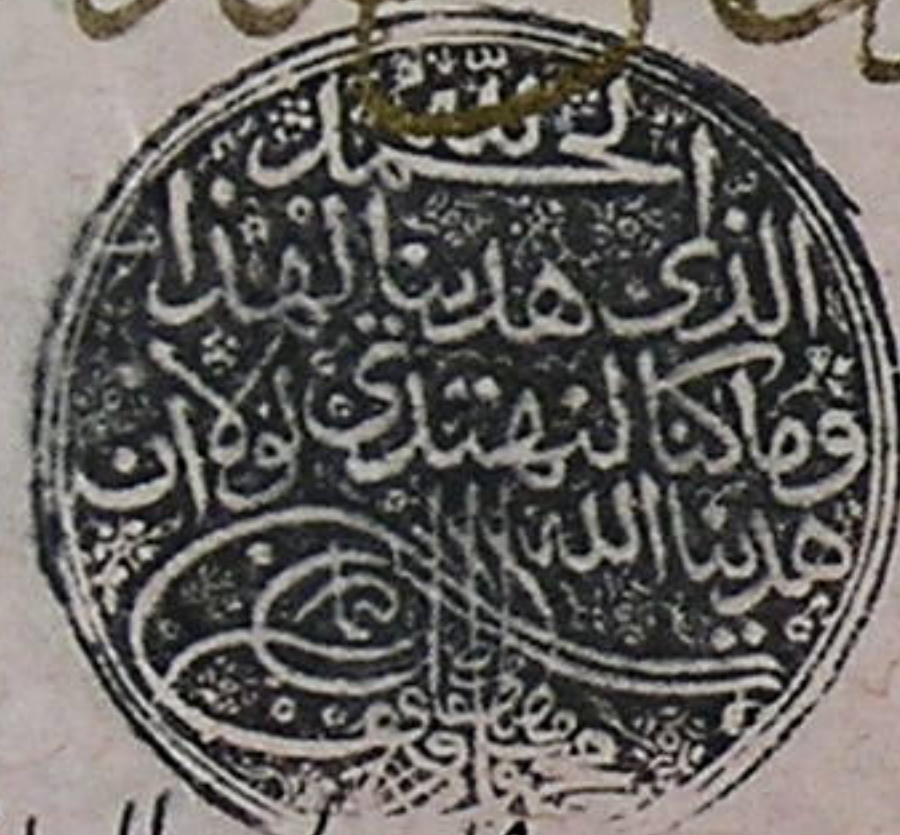 الحمد لله
الذى هدينا لهذا
وماكنا لنهتدي لولا ان
هدينا الله